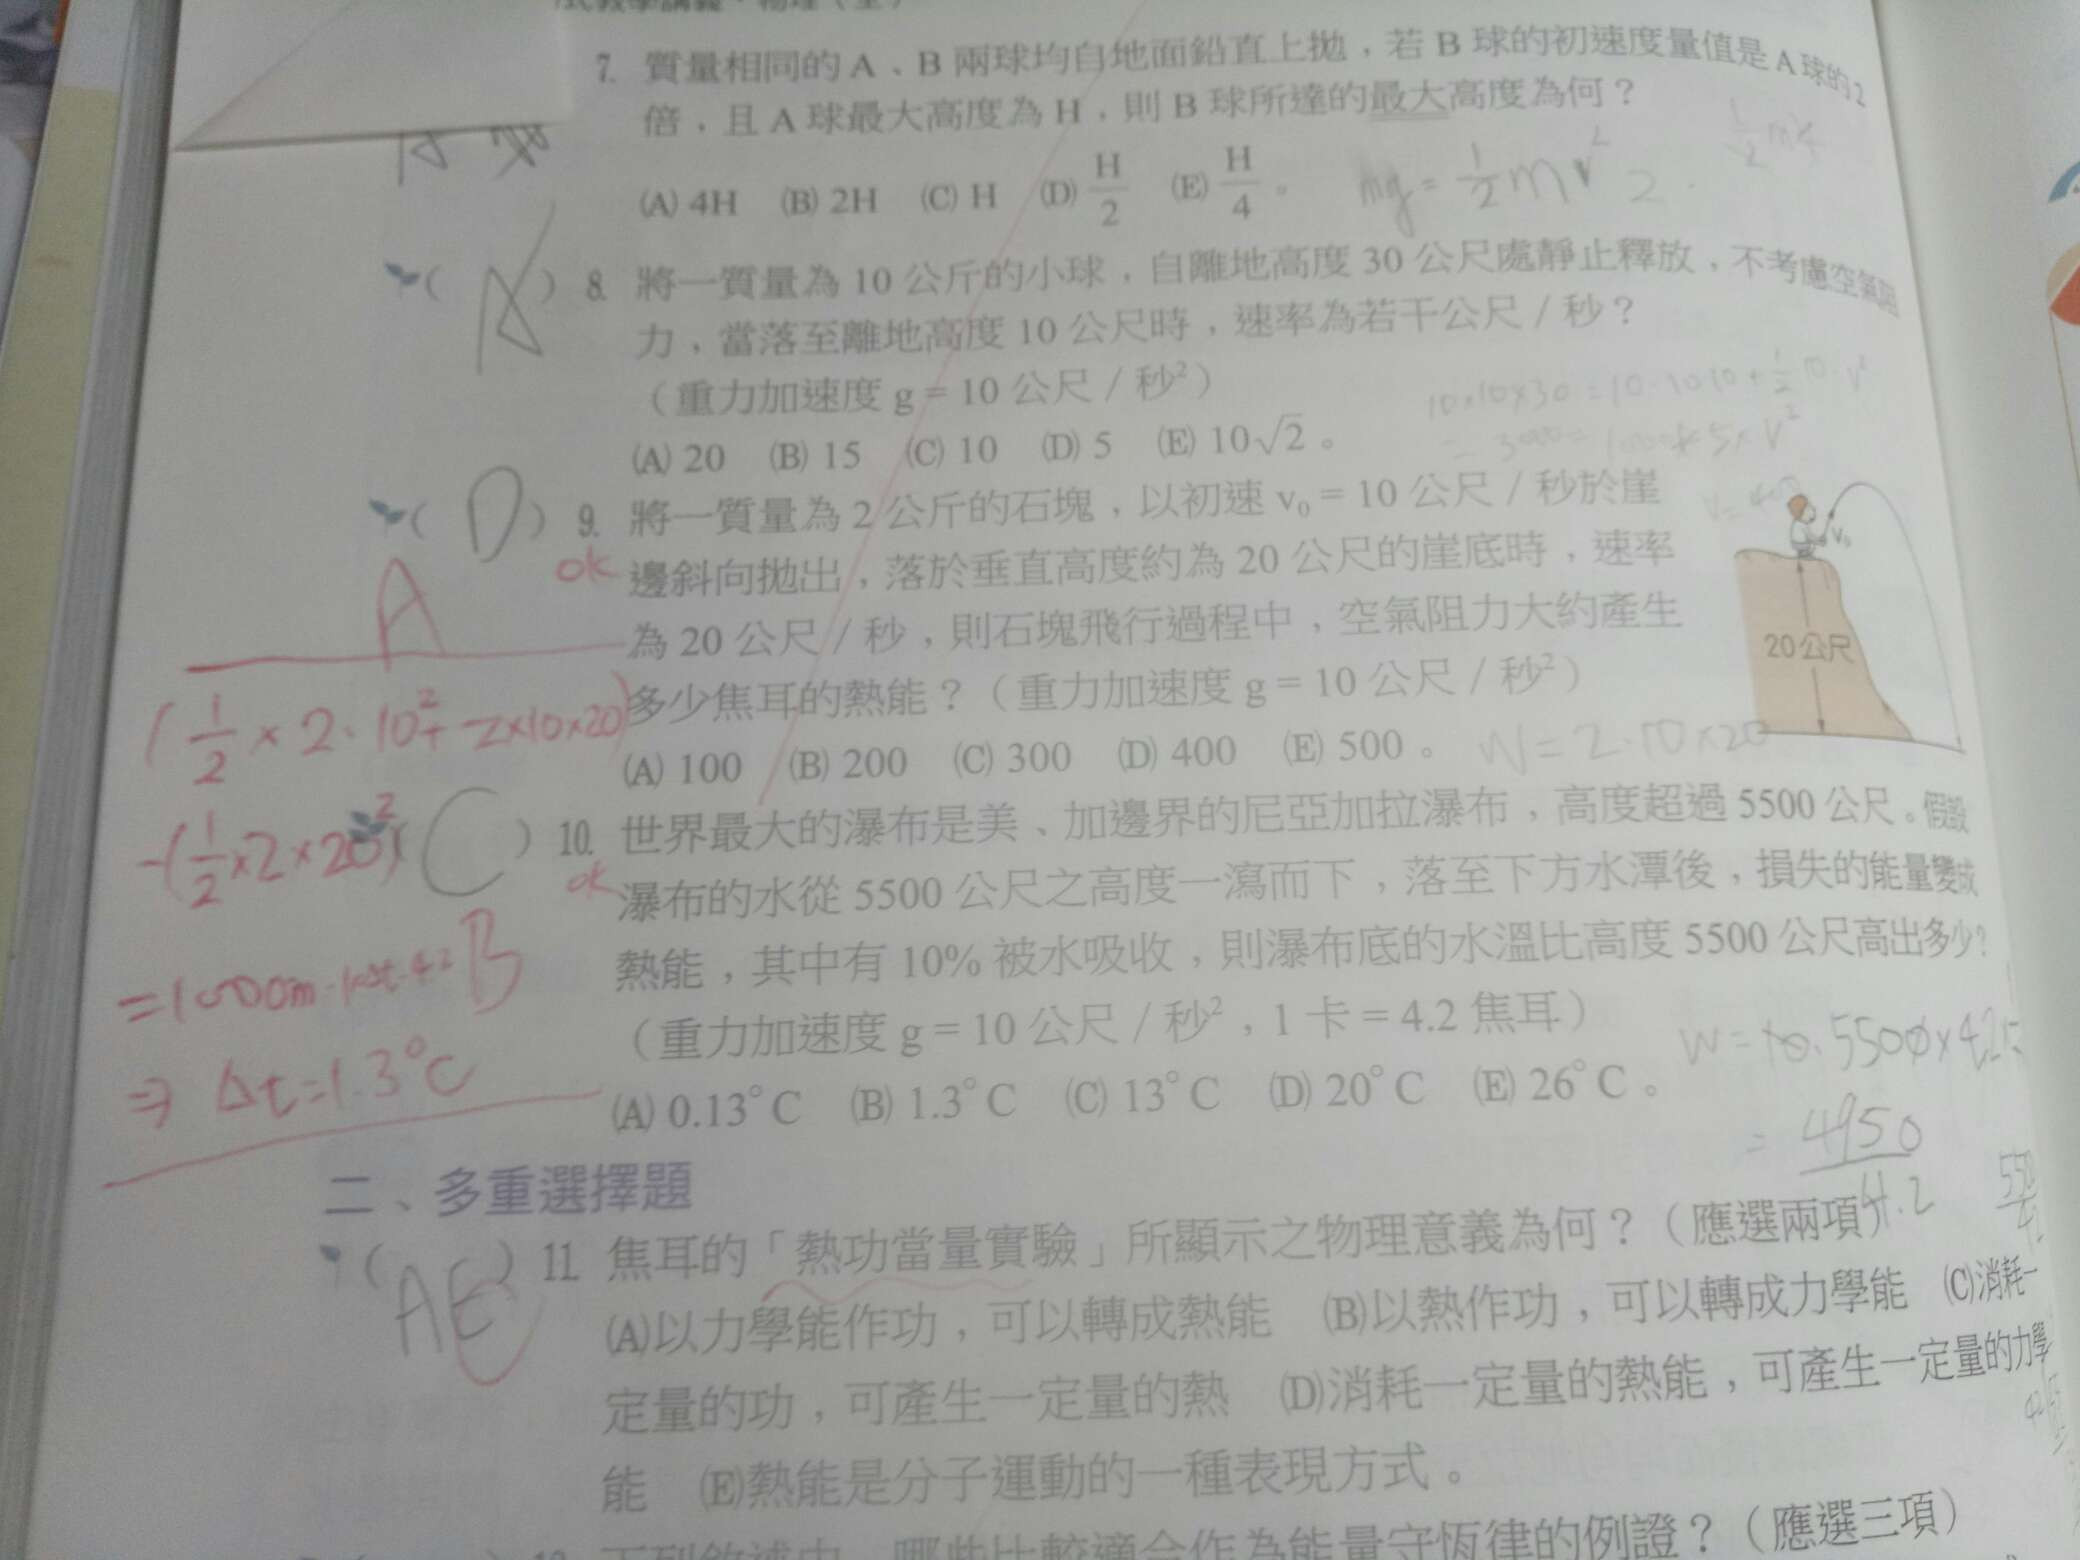 7. 質量相同的 A、B 兩球均自地面鉛直上拋，若 B 球的初速度量值是 A 球的 2
倍，且 A 球最大高度為 H，則 B 球所達的最大高度為何？
(A) 4H (B) 2H (C) H (D) H/2 (E) H/4。
mg = 1/2 m v² 2
(A) 8. 將一質量為 10 公斤的小球，自離地高度 30 公尺處靜止釋放，不考慮空氣阻
力，當落至離地高度 10 公尺時，速率為若干公尺／秒？
（重力加速度 g = 10 公尺／秒²）
10×10×30 = 10·10·10 + 1/2 10·v²
(A) 20 (B) 15 (C) 10 (D) 5 (E) 10√2。
(D) 9. 將一質量為 2 公斤的石塊，以初速 v₀ = 10 公尺／秒於崖
ok
邊斜向拋出，落於垂直高度約為 20 公尺的崖底時，速率
A
為 20 公尺／秒，則石塊飛行過程中，空氣阻力大約產生
多少焦耳的熱能？（重力加速度 g = 10 公尺／秒²）
(A) 100 (B) 200 (C) 300 (D) 400 (E) 500。
W = 2·10×20
v₀
20 公尺
(1/2 × 2·10² + 2×10×20)
-(1/2 × 2 × 20²)
(C) 10. 世界最大的瀑布是美、加邊界的尼亞加拉瀑布，高度超過 5500 公尺。假設
ok
瀑布的水從 5500 公尺之高度一瀉而下，落至下方水潭後，損失的能量變成
熱能，其中有 10% 被水吸收，則瀑布底的水溫比高度 5500 公尺高出多少？
（重力加速度 g = 10 公尺／秒²，1 卡 = 4.2 焦耳）
(A) 0.13°C (B) 1.3°C (C) 13°C (D) 20°C (E) 26°C。
B
⇒ Δt = 1.3°C
4950
4.2
二、多重選擇題
(AE) 11. 焦耳的「熱功當量實驗」所顯示之物理意義為何？（應選兩項）
(A)以力學能作功，可以轉成熱能 (B)以熱作功，可以轉成力學能 (C)消耗一
定量的功，可產生一定量的熱 (D)消耗一定量的熱能，可產生一定量的力學
能 (E)熱能是分子運動的一種表現方式。
下列敘述中，哪些比較適合作為能量守恆律的例證？（應選三項）